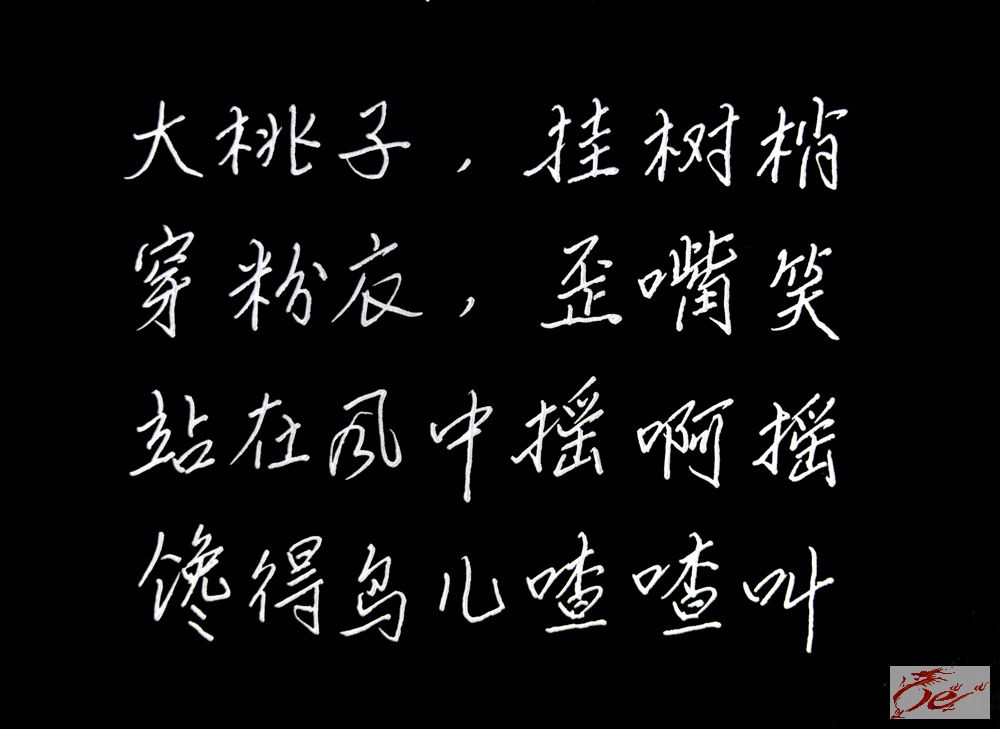 大桃子，挂树梢
穿粉衣，歪嘴笑
站在风中摇啊摇
馋得鸟儿喳喳叫